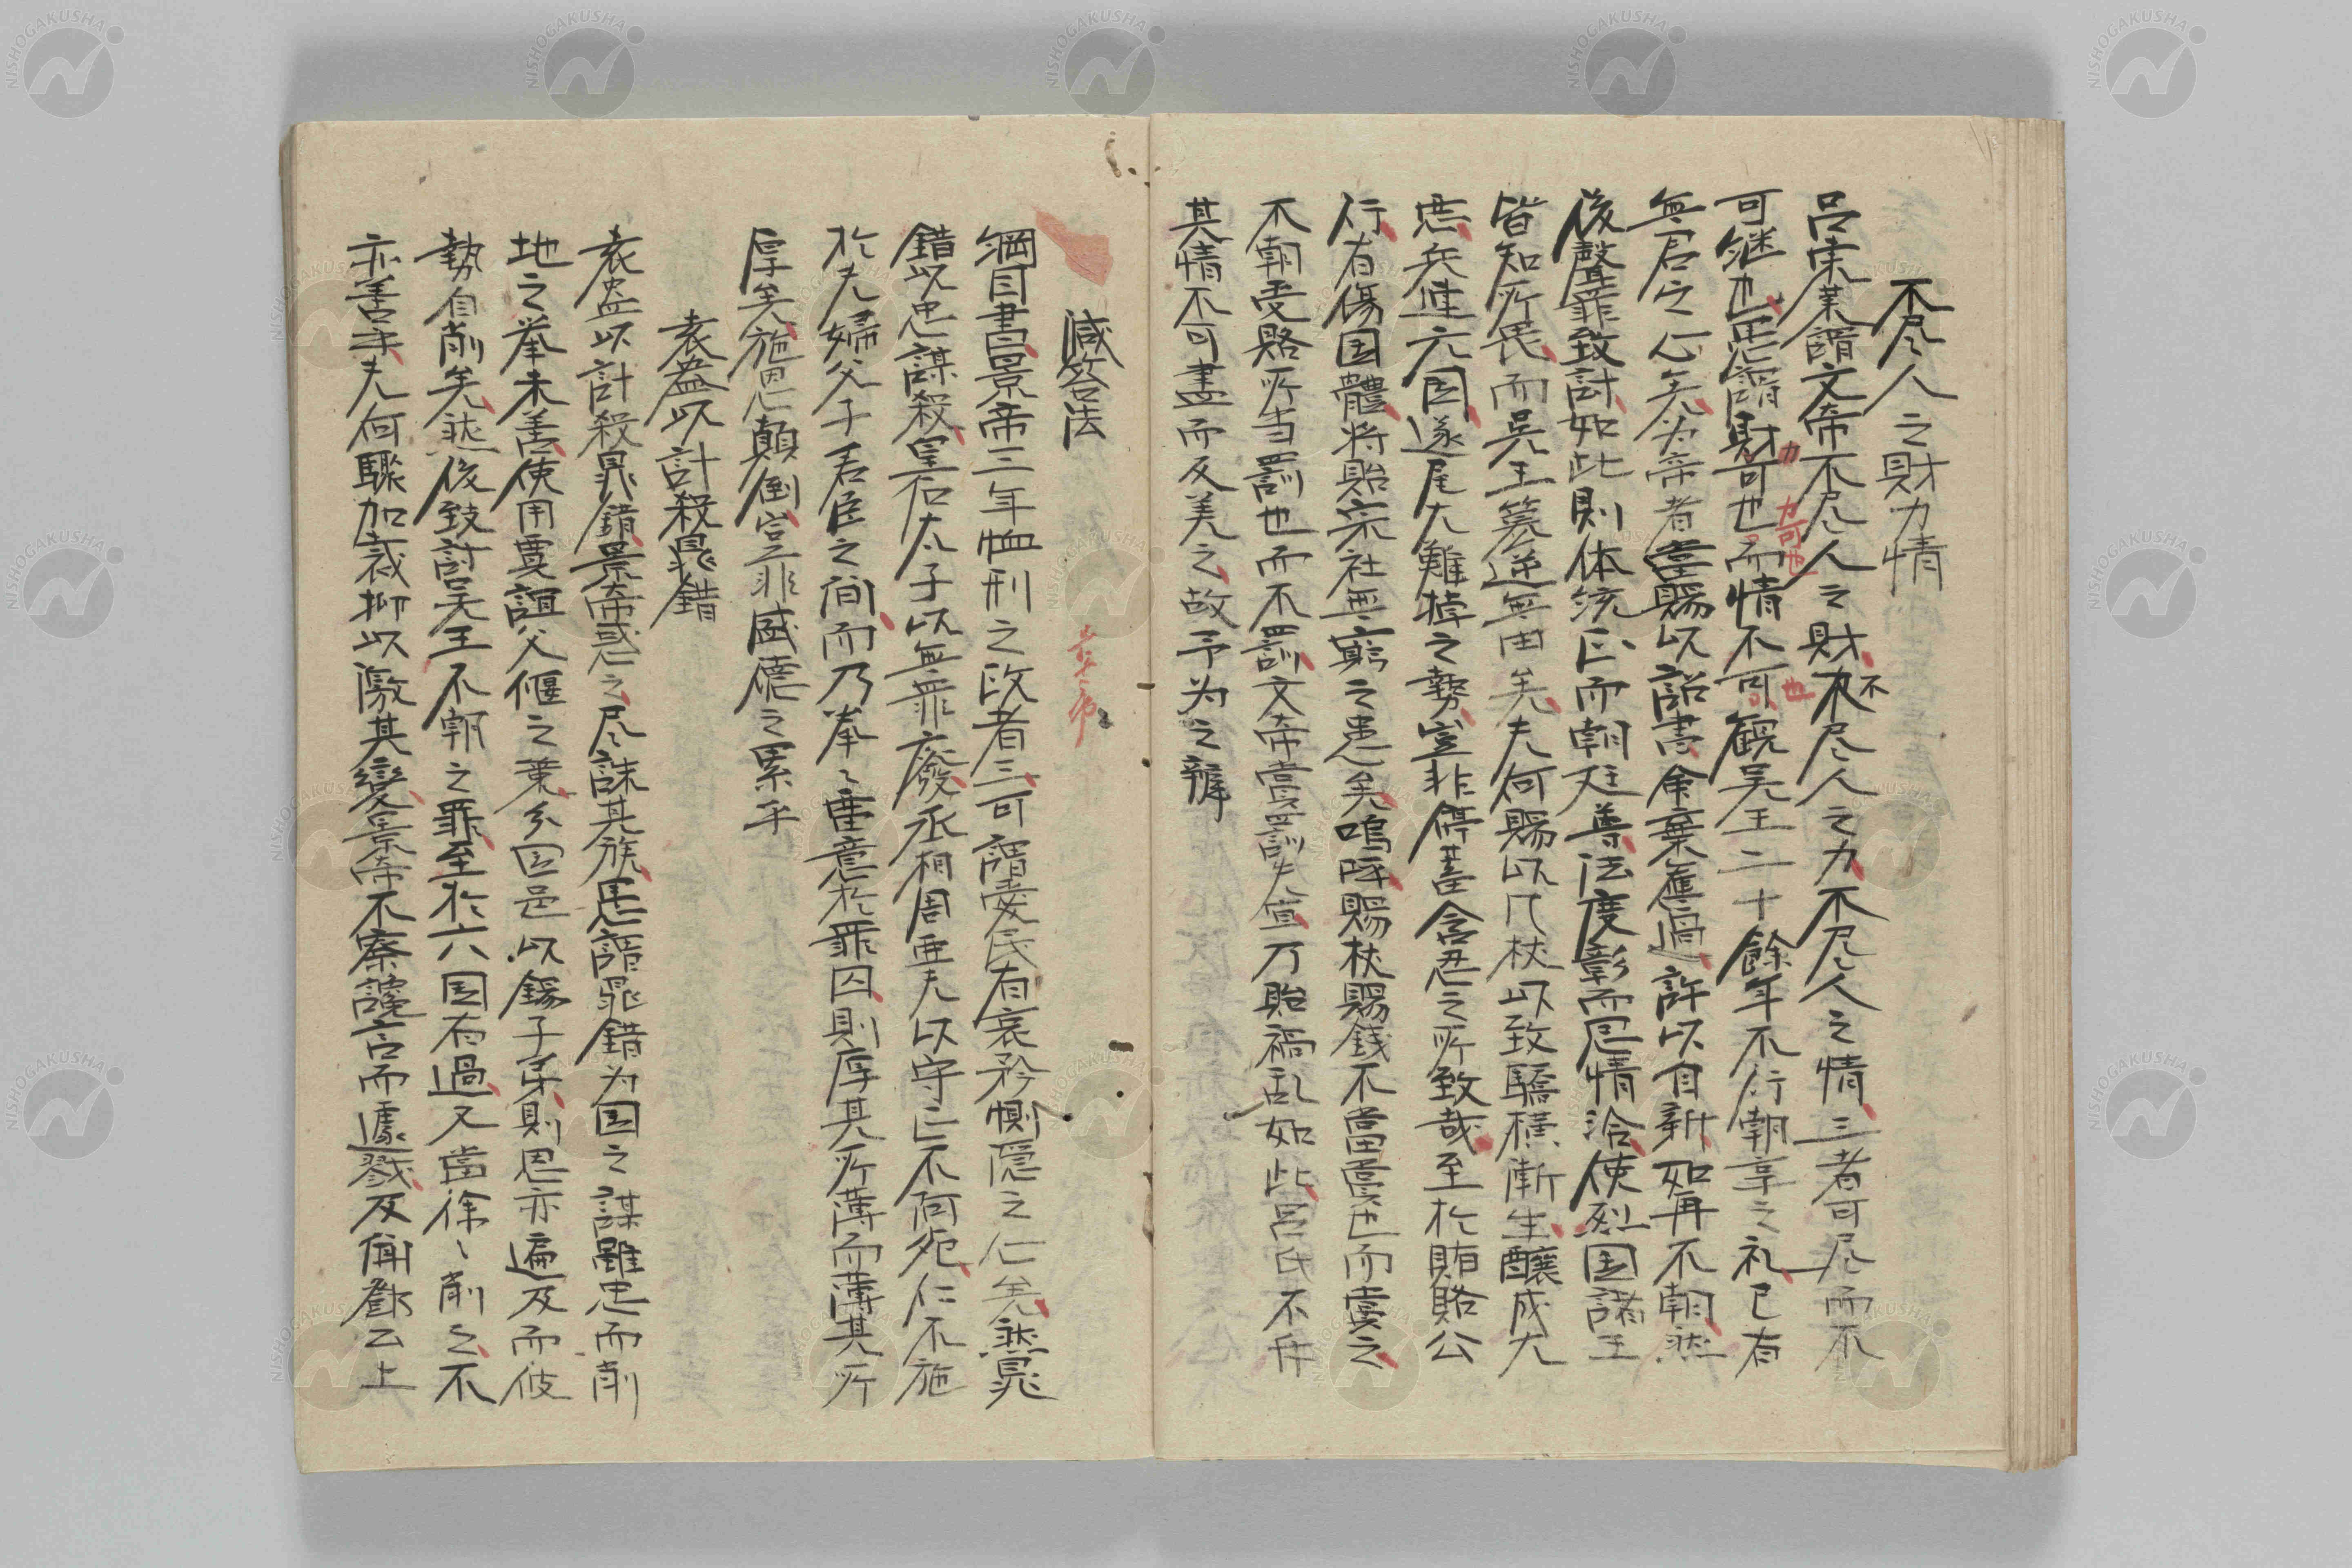 不尽人之財力情
呂東莱謂文帝不尽人之財不尽人之力不尽人之情三者可尽而不
可継也愚謂財可也力可也而情不可也観吴王二十餘年不行朝享之礼已有
無君之心矣为帝者當賜以詔書余棄舊過許以自新如再不朝然
後聲罪致討如此則体統正而朝廷尊法度彰而恩情洽使列国諸王
皆知所畏而吴王篡逆無由矣夫何賜以几杖以致驕横漸生釀成大
恶兵連六国遂尾大難掉之勢豈非停蓄含忍之所致哉至於賄賂公
行有傷国體将貽宗社無窮之患矣嗚呼賜杖賜錢不當賞也而賞之
不朝受賂所当罰也而不罰文帝賞罰失宜乃貽禍乱如此呂氏不斥
其情不可盡而反美之故予为之辯
減笞法
景帝
綱目書景帝三年恤刑之政者三可謂愛民有哀矜惻隠之仁矣然晁
錯以忠謀殺皇后太子以無罪廢丞相周亜夫以守正不何死仁不施
於夫婦父子君臣之间而乃拳〻垂意於罪囚則厚其所薄而薄其所
厚矣施恩顛倒豈非盛德之累乎
袁盎以計殺晁錯
袁盎以計殺晁錯景帝惑之尽誅其族愚謂晁錯为国之謀雖忠而削
地之举未善使用賈誼父偃之策分国邑以錫子弟則恩亦遍及而彼
勢自削矣然後致討吴王不朝之罪至於六国有過又當徐〻削之不
亦善乎夫何驟加裁抑以激其變景帝不察讒言而遽戮及聞鄧公上